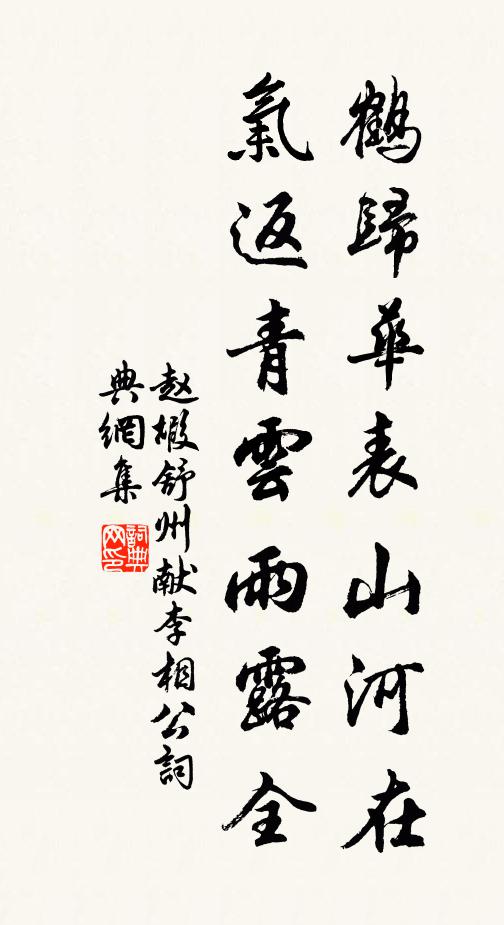 鶴歸華表山河在
氣返青雲雨露全
赵嘏舒州献李相公詞
典網集
詞典
网印